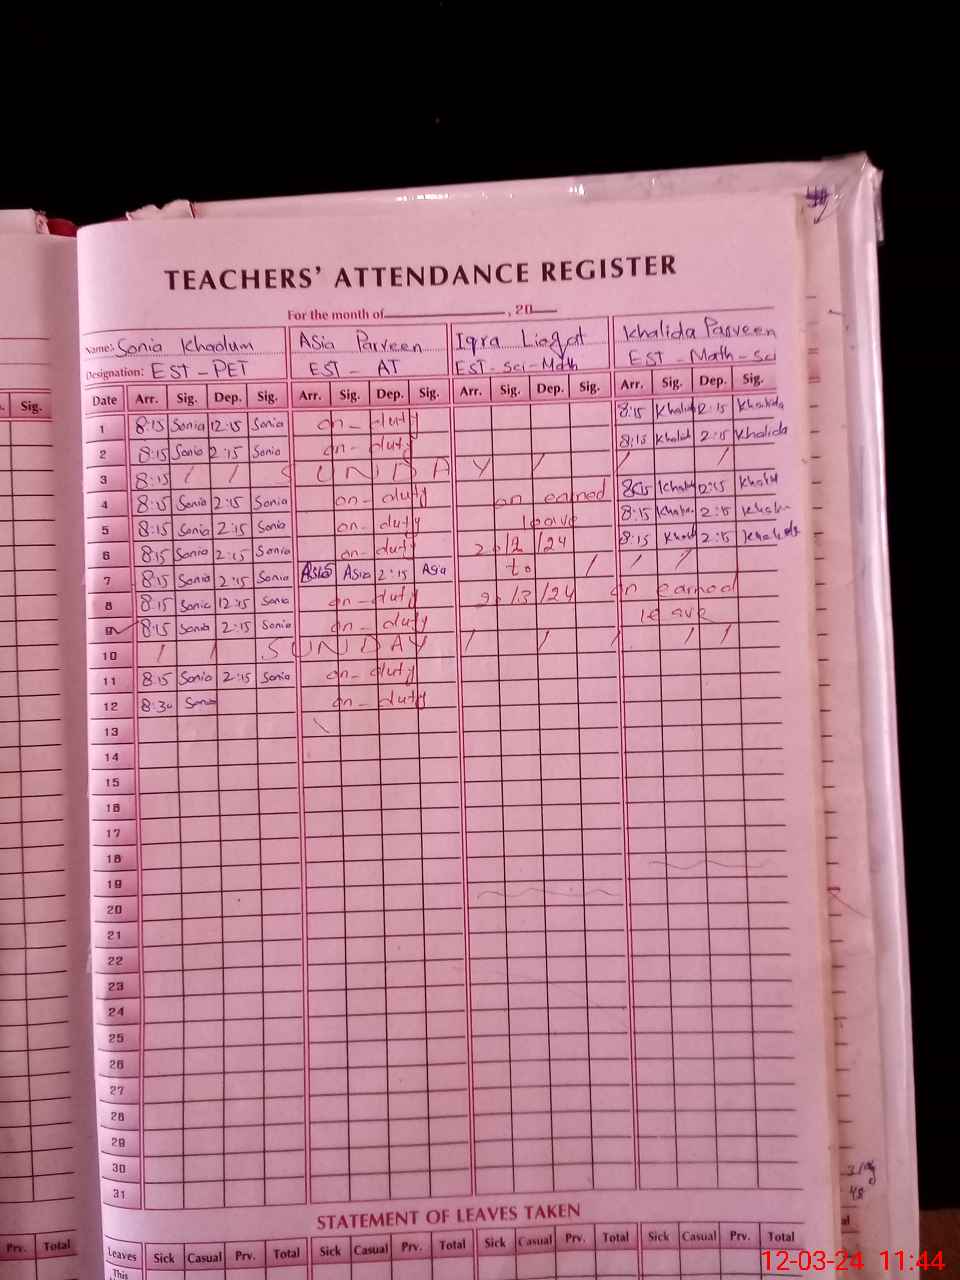 TEACHERS' ATTENDANCE REGISTER
For the month of , 20
Name: Sonia Khaolum Asia Parveen Iqra Liaqat Khalida Parveen
Designation: EST - PET EST - AT EST - Sci - Math EST - Math - Sci
Sig. Date Arr. Sig. Dep. Sig. Arr. Sig. Dep. Sig. Arr. Sig. Dep. Sig. Arr. Sig. Dep. Sig.
1 8:15 Sonia 12:15 Sonia on - duty 8:15 Khalid 12:15 Khalida
2 8:15 Sonia 2:15 Sonia on - duty 8:15 Khalid 2:15 Khalida
3 8:15 / / SUNDAY / / /
4 8:15 Sonia 2:15 Sonia on - duty on earned 8:15 2:15
5 8:15 Sonia 2:15 Sonia on - duty leave 8:15 2:15
6 8:15 Sonia 2:15 Sonia on - duty 2/2/24 8:15 2:15
7 8:15 Sonia 2:15 Sonia Asia 2:15 Asia to / / /
8 8:15 Sonia 12:15 Sonia on - duty /3/24 on earned
9 8:15 Sonia 2:15 Sonia on - duty leave
10 / / SUNDAY / / / / /
11 8:15 Sonia 2:15 Sonia on - duty
12 8:30 Sonia on - duty
13
14
15
16
17
18
19
20
21
22
23
24
25
26
27
28
29
30
31
STATEMENT OF LEAVES TAKEN
Prv. Total Leaves Sick Casual Prv. Total Sick Casual Prv. Total Sick Casual Prv. Total Sick Casual Prv. Total
This
48
12-03-24 11:44